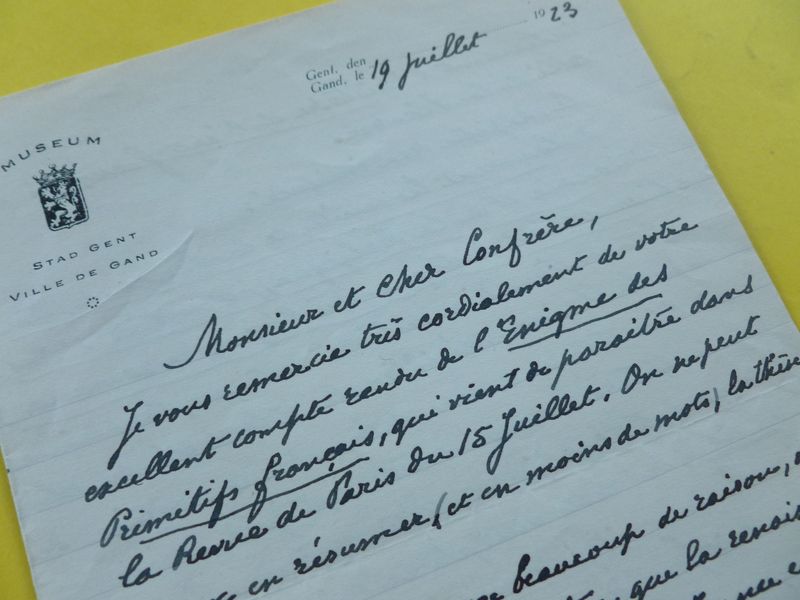 Gent, den
Gand, le 19 Juillet 1923
MUSEUM
STAD GENT
VILLE DE GAND
Monsieur et Cher Confrère,
Je vous remercie très cordialement de votre
excellent compte rendu de l'Enigme des
Primitifs français, qui vient de paraître dans
la Revue de Paris du 15 Juillet. On ne peut
en résumer, (et en moins de mots) la
beaucoup de raison,
que la